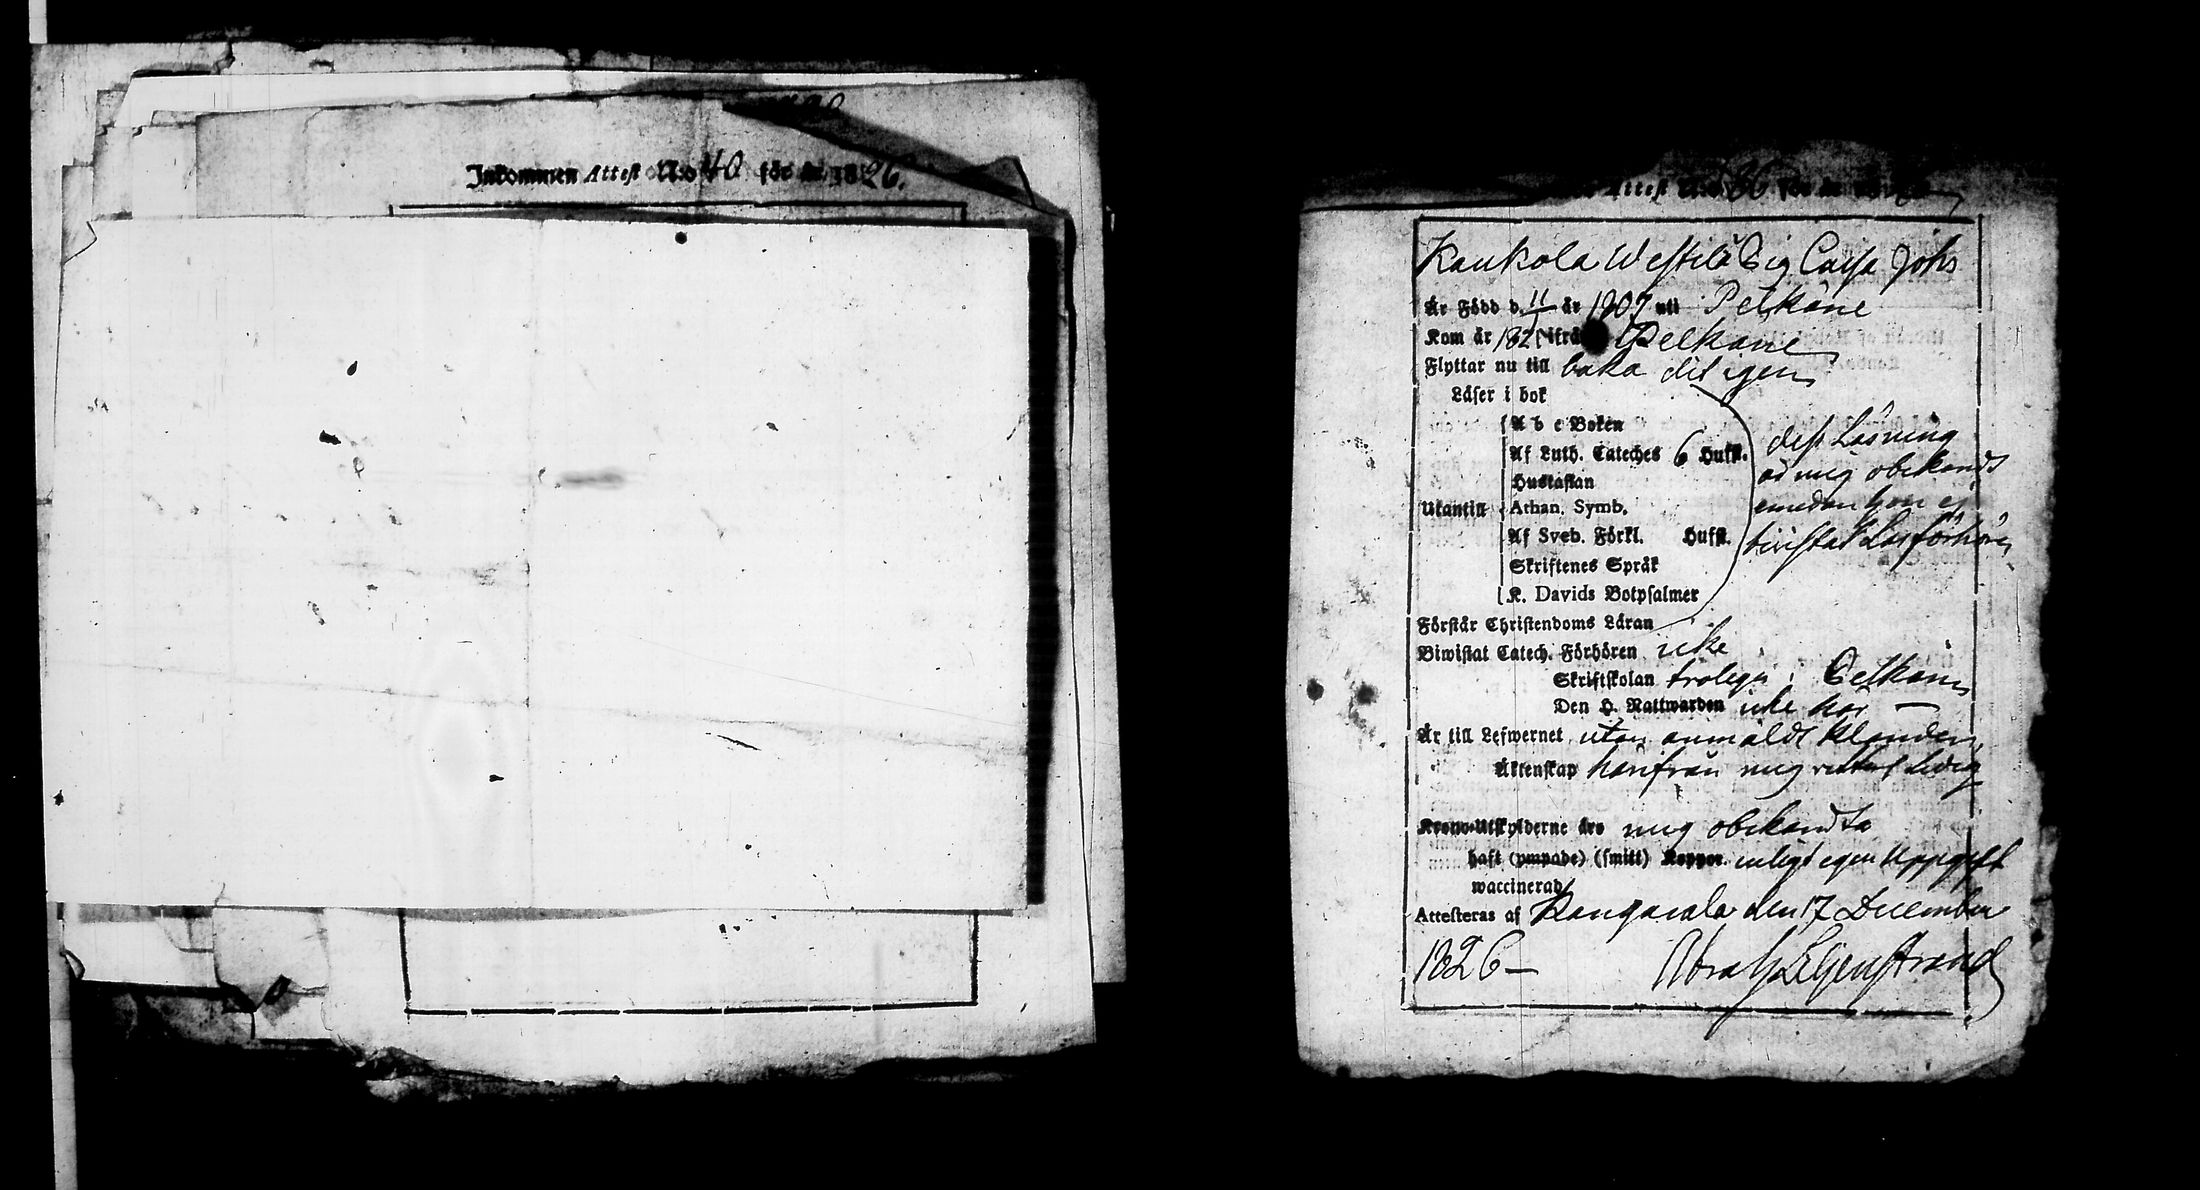 Inkommen Attest N:o 40 för år 1826.
Attest N:o 86 för år
Kaukola Westilä Pig Caisa Johs
Är Född d. 11 år 1807 uti Pelkäne
Kom år 1821 ifrå Pelkäne
Flyttar nu till baka dit igen
Läser i bok
A b c Boken
Af Luth. Cateches 6 Hufst.
Hustaflan
Utantill Athan. Symb.
Af Sveb. Förkl. Hufst.
Skriftenes Språk
K. Davids Botpsalmer
dess Läsning
är mig obekandt
emedan hon ej
bivistat Läsförhören
Förstår Christendoms Läran
Biwistat Catech. Förhören icke
Skriftskolan troligen i Pelkäne
Den H. Nattwarden icke här —
Är till Lefwernet utan anmäldt klander
Äktenskap härifrån mig veterl ledig
Krono-Utskylderne äro mig obekandta
haft (ympade) (smitt) Koppor. enligt egen uppgift
waccinerad
Attesteras af Kangasala den 17 December
1826 — Abrah Liljenstrand